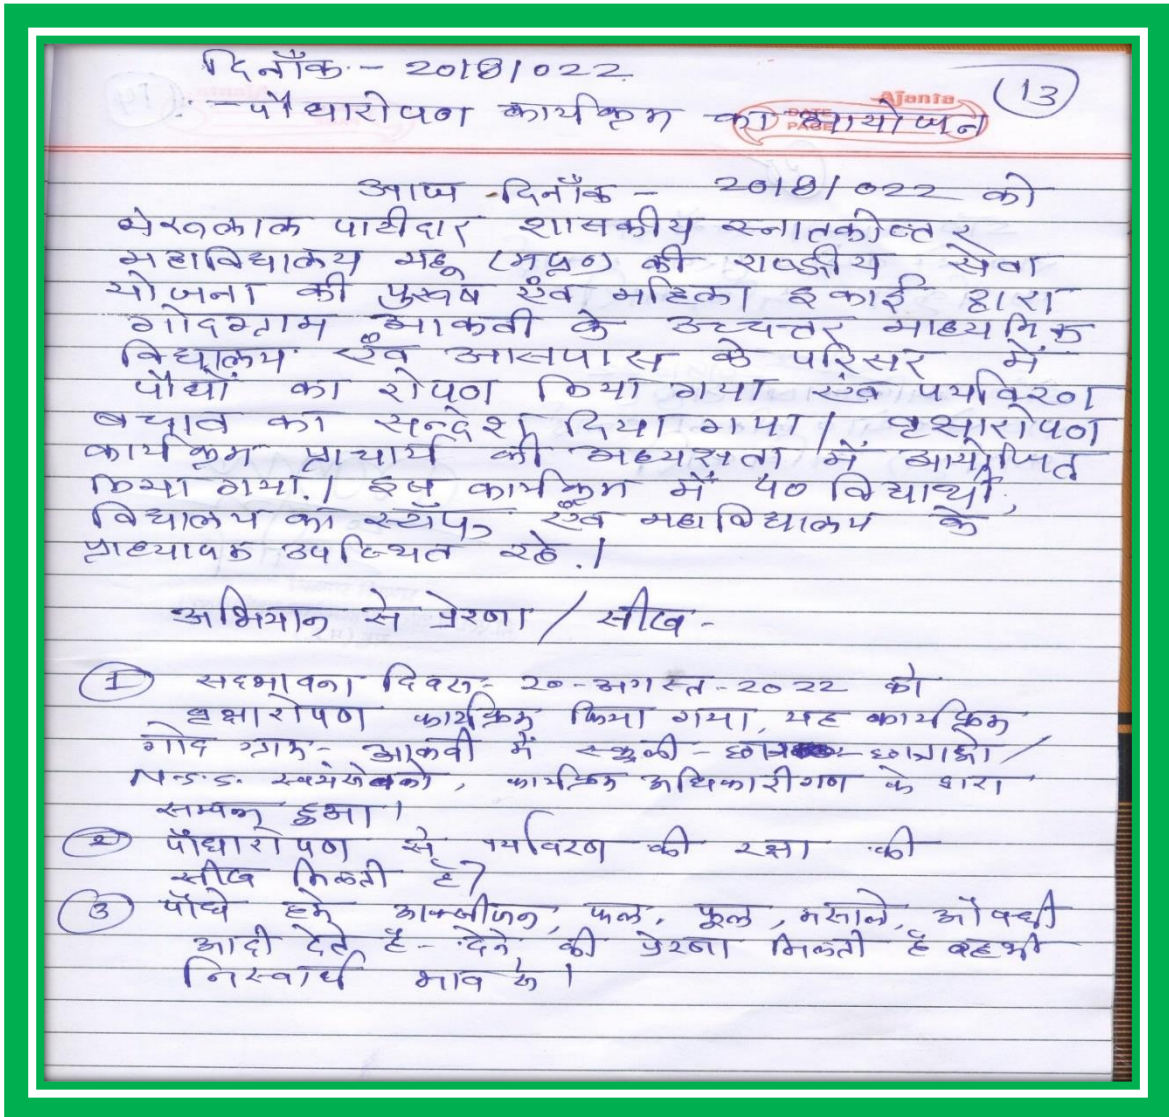 दिनाँक - 20/8/022
13
Ajanta
DATE
PAGE
- पौधारोपण कार्यक्रम का आयोजन
आज दिनाँक - 20/8/022 को
भेरूलाल पाटीदार शासकीय स्नातकोत्तर
महाविद्यालय महू (म0प्र0) की राष्ट्रीय सेवा
योजना की पुरूष एंव महिला इकाई द्वारा
गोदग्राम आकवी के उच्चत्तर माध्यमिक
विद्यालय एंव आसपास के परिसर में
पौधों का रोपण किया गया एंव पर्यावरण
बचाव का सन्देश दिया गया / वृक्षारोपण
कार्यक्रम प्राचार्य की अध्यक्षता में आयोजित
किया गया. / इस कार्यक्रम में 40 विद्यार्थी,
विद्यालय का स्टॉफ, एंव महाविद्यालय के
प्राध्यापक उपस्थित रहे. /
अभियान से प्रेरणा / सीख -
1 सदभावना दिवस - 20-अगस्त-2022 को
वृक्षारोपण कार्यक्रम किया गया, यह कार्यक्रम
गोद ग्राम - आकवी में स्कुली - छात्र - छात्राओ /
N.S.S. स्वयंसेवको, कार्यक्रम अधिकारीगण के द्वारा
सम्पन्न हुआ ।
2 पौधारोपण से पर्यावरण की रक्षा की
सीख मिलती है?
3 पौधे हमे आक्सीजन, फल, फूल, मसाले, औषधी
आदी देते है - देने की प्रेरणा मिलती है वह भी
निस्वार्थ भाव से ।